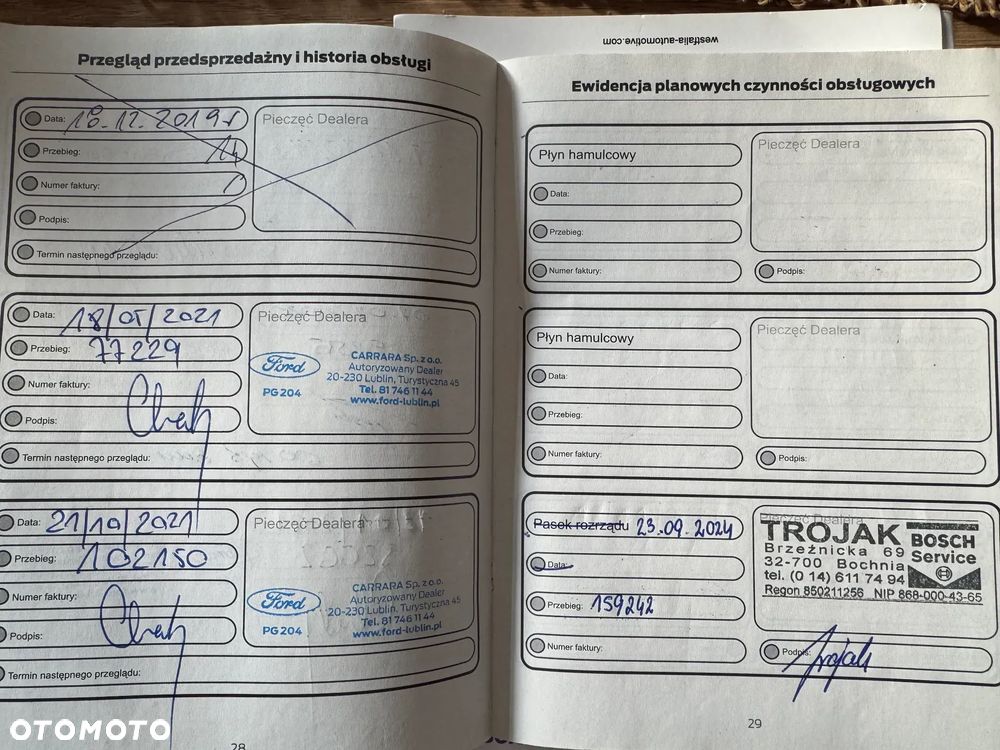 westfalia-automotive.com
Przegląd przedsprzedażny i historia obsługi
Data: 18.12.2019r
Pieczęć Dealera
Przebieg: 14
Numer faktury:
Podpis:
Termin następnego przeglądu:
Data: 18/05/2021
Pieczęć Dealera
Przebieg: 77229
Numer faktury:
Podpis:
Ford
PG204
CARRARA Sp. z o.o.
Autoryzowany Dealer
20-230 Lublin, Turystyczna 45
Tel. 81 746 11 44
www.ford-lublin.pl
Termin następnego przeglądu:
Data: 21/10/2021
Pieczęć Dealera
Przebieg: 102150
Numer faktury:
Podpis:
Ford
PG204
CARRARA Sp. z o.o.
Autoryzowany Dealer
20-230 Lublin, Turystyczna 45
Tel. 81 746 11 44
www.ford-lublin.pl
Termin następnego przeglądu:
28
Ewidencja planowych czynności obsługowych
Płyn hamulcowy
Pieczęć Dealera
Data:
Przebieg:
Numer faktury:
Podpis:
Płyn hamulcowy
Pieczęć Dealera
Data:
Przebieg:
Numer faktury:
Podpis:
Pasek rozrządu 23.09.2024
Pieczęć Dealera
Data:
Przebieg: 159242
Numer faktury:
TROJAK
Brzeźnicka 69
32-700 Bochnia
tel. (0 14) 611 74 94
BOSCH
Service
Regon 850211256 NIP 868-000-43-65
Podpis: Trojak
29
OTOMOTO